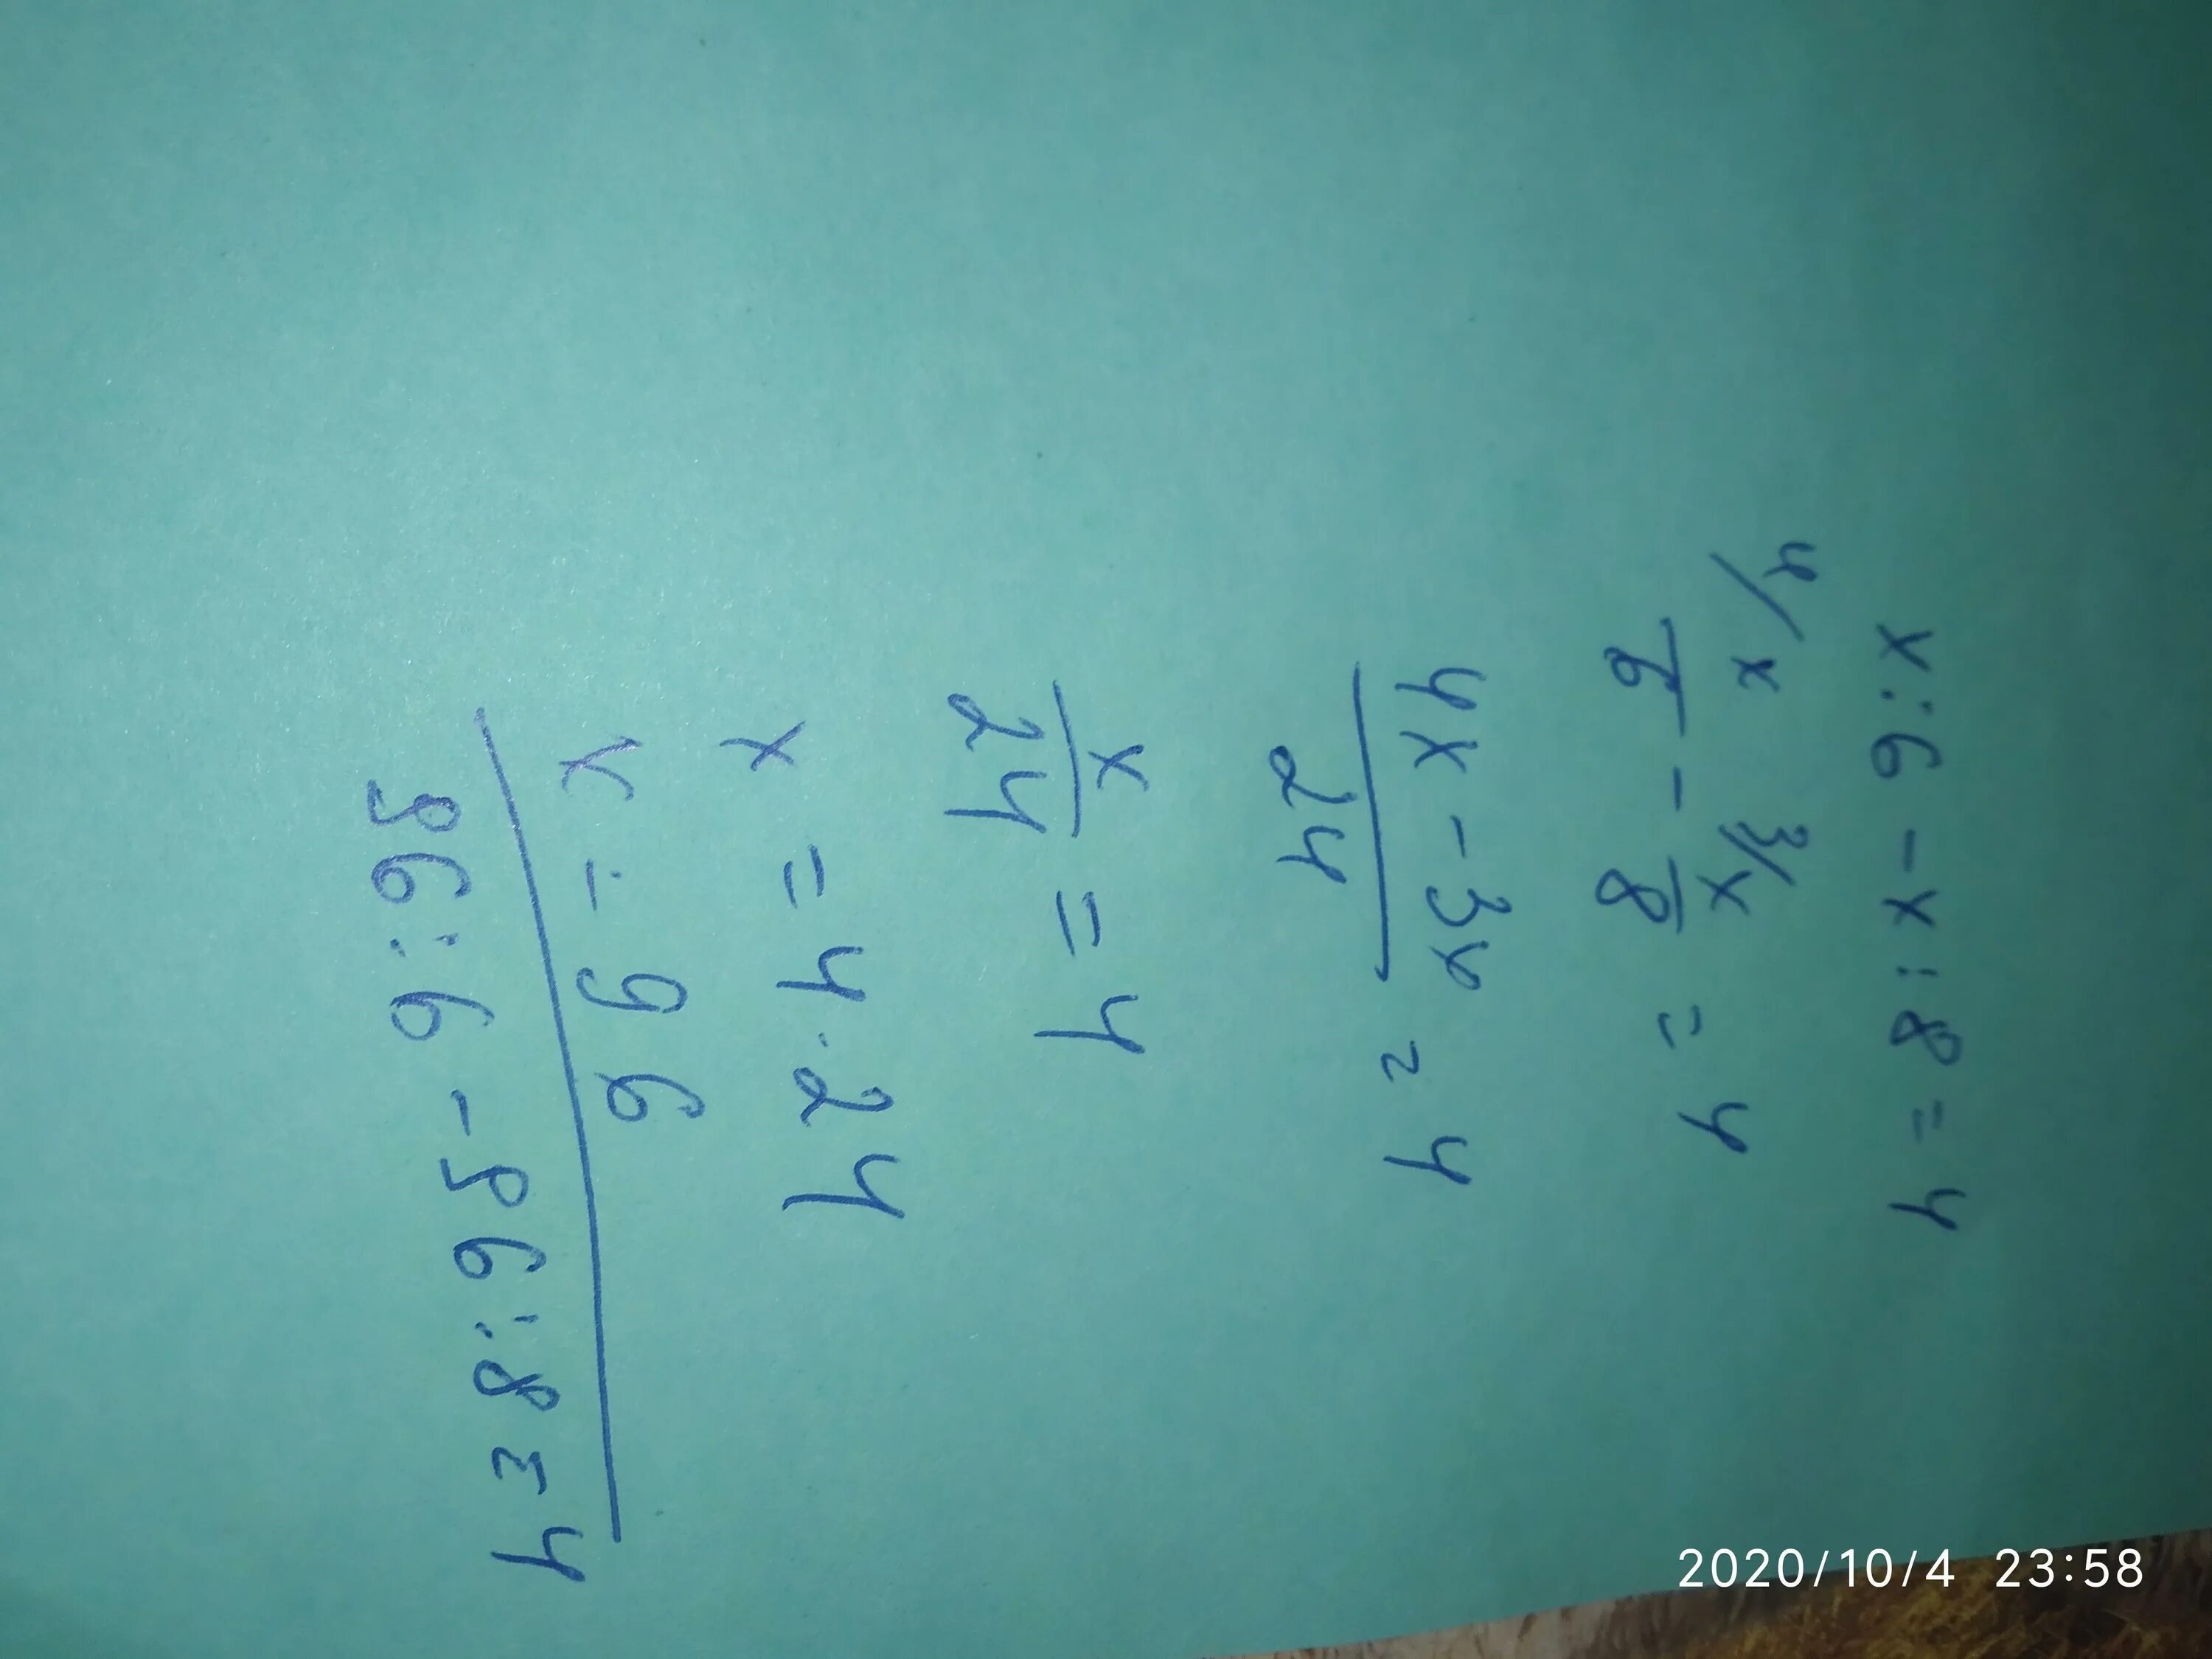 x:6-x:8=4
4/x/6 - 3/x/8 = 4
4x-3x/24 = 4
x/24 = 4
x = 4·24
x = 96
96:6-96:8=4
2020/10/4 23:58